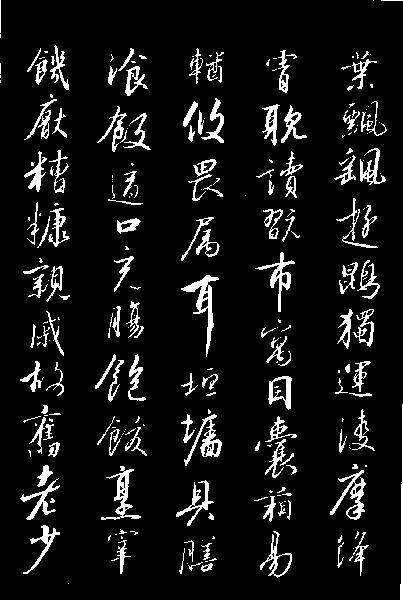 葉飄颻遊鵾獨運凌摩絳
霄耽讀翫市寓目囊箱易
輶攸畏属耳垣墻具膳
飡飯適口充腸飽飫烹宰
饑厭糟糠親戚故舊老少